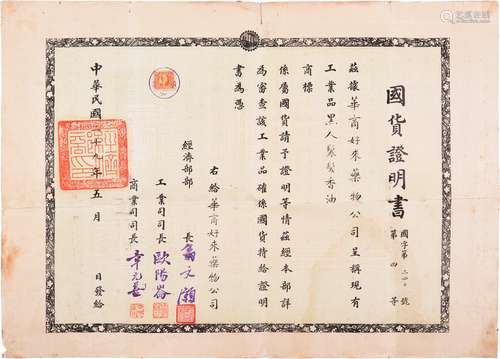 國貨證明書
國字第二四〇號
第四等
茲據華商好來藥物公司呈稱現有
工業品黑人髮香油
商標
係屬國貨請予證明等情茲經本部詳
為審查該工業品確係國貨特給證明
書為憑
右給華商好來藥物公司
經濟部部長翁文灝
工業司司長歐陽崙
商業司司長章元善
中華民國二十九年五月 日發給